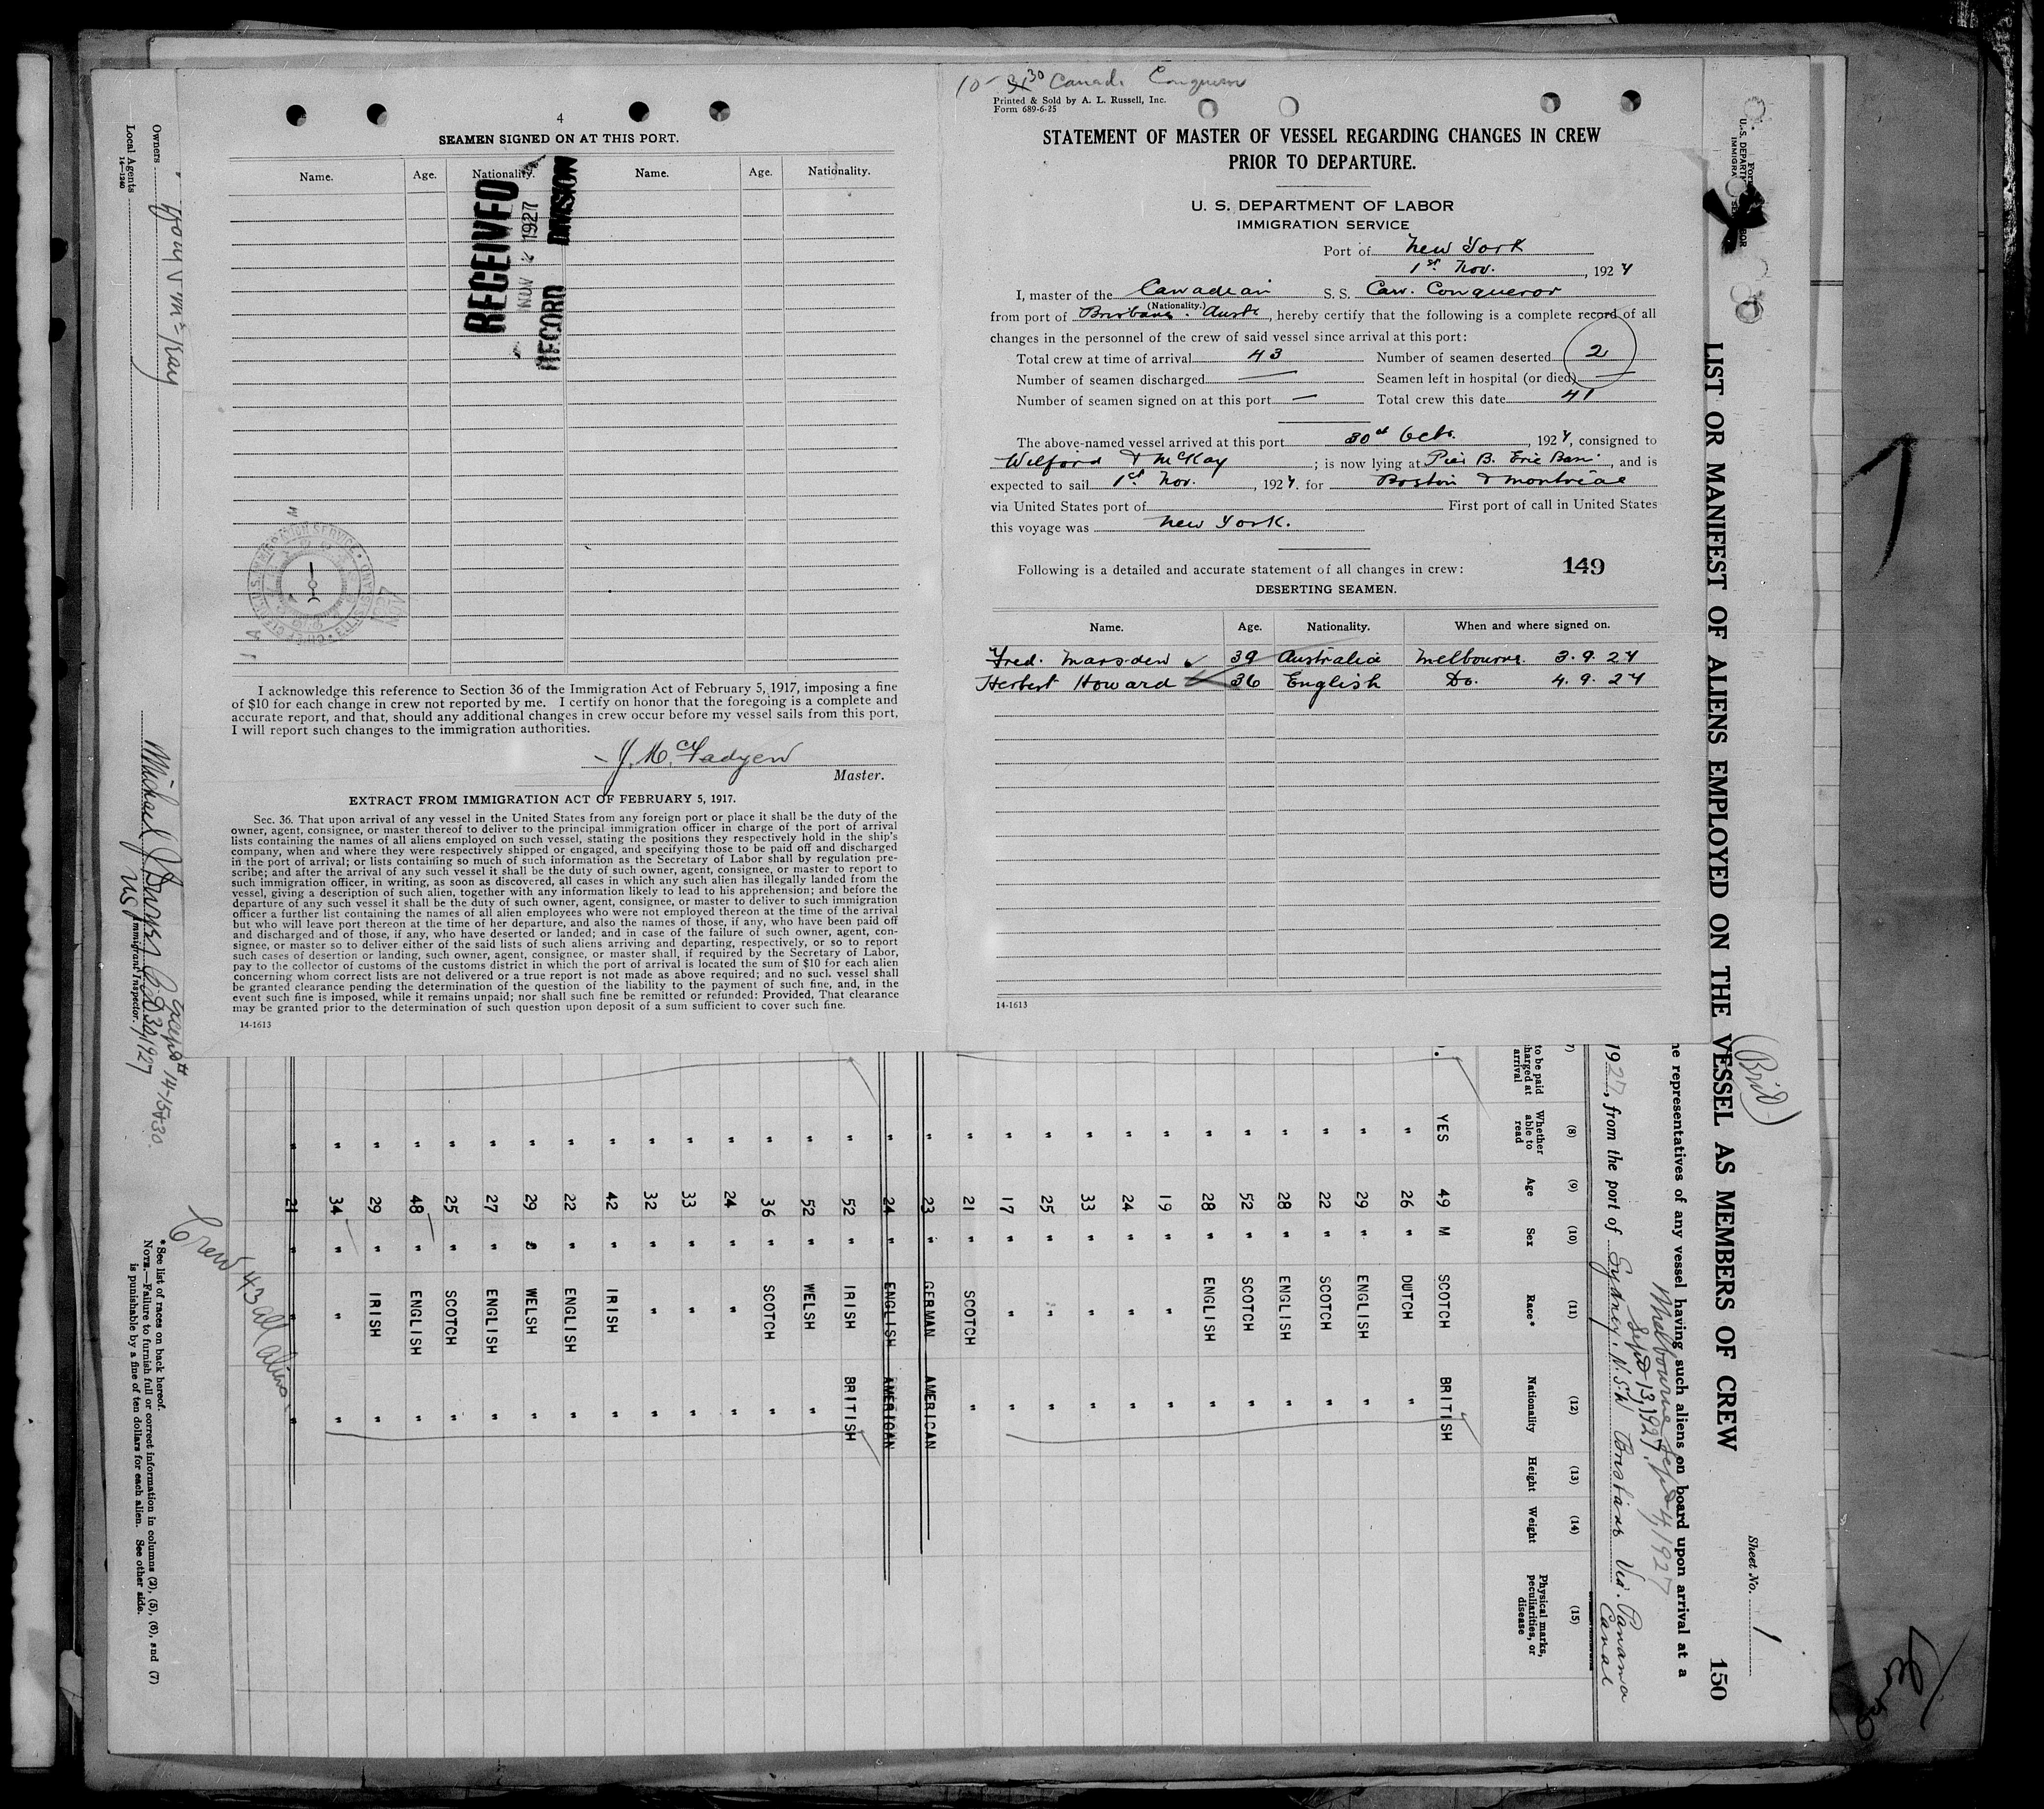 4
SEAMEN SIGNED ON AT THIS PORT.
Name. Age. Nationality. Name. Age. Nationality.
RECEIVED
NOV 1927
RECORD DIVISION
I acknowledge this reference to Section 36 of the Immigration Act of February 5, 1917, imposing a fine
of $10 for each change in crew not reported by me. I certify on honor that the foregoing is a complete and
accurate report, and that, should any additional changes in crew occur before my vessel sails from this port,
I will report such changes to the immigration authorities.
J. McFadyen
Master.
EXTRACT FROM IMMIGRATION ACT OF FEBRUARY 5, 1917.
Sec. 36. That upon arrival of any vessel in the United States from any foreign port or place it shall be the duty of the
owner, agent, consignee, or master thereof to deliver to the principal immigration officer in charge of the port of arrival
lists containing the names of all aliens employed on such vessel, stating the positions they respectively hold in the ship's
company, when and where they were respectively shipped or engaged, and specifying those to be paid off and discharged
in the port of arrival; or lists containing so much of such information as the Secretary of Labor shall by regulation pre-
scribe; and after the arrival of any such vessel it shall be the duty of such owner, agent, consignee, or master to report to
such immigration officer, in writing, as soon as discovered, all cases in which any such alien has illegally landed from the
vessel, giving a description of such alien, together with any information likely to lead to his apprehension; and before the
departure of any such vessel it shall be the duty of such owner, agent, consignee, or master to deliver to such immigration
officer a further list containing the names of all alien employees who were not employed thereon at the time of the arrival
but who will leave port thereon at the time of her departure, and also the names of those, if any, who have been paid off
and discharged and of those, if any, who have deserted or landed; and in case of the failure of such owner, agent, con-
signee, or master so to deliver either of the said lists of such aliens arriving and departing, respectively, or so to report
such cases of desertion or landing, such owner, agent, consignee, or master shall, if required by the Secretary of Labor,
pay to the collector of customs of the customs district in which the port of arrival is located the sum of $10 for each alien
concerning whom correct lists are not delivered or a true report is not made as above required; and no such vessel shall
be granted clearance pending the determination of the question of the liability to the payment of such fine, and, in the
event such fine is imposed, while it remains unpaid; nor shall such fine be remitted or refunded: Provided, That clearance
may be granted prior to the determination of such question upon deposit of a sum sufficient to cover such fine.
14-1613
10-30 Canad. Conqueror
Printed & Sold by A. L. Russell, Inc.
Form 689-6-25
STATEMENT OF MASTER OF VESSEL REGARDING CHANGES IN CREW
PRIOR TO DEPARTURE.
U. S. DEPARTMENT OF LABOR
IMMIGRATION SERVICE
Port of New York
1st Nov., 1927
I, master of the Canadian S. S. Can. Conqueror
(Nationality.)
from port of Brisbane. Austr, hereby certify that the following is a complete record of all
changes in the personnel of the crew of said vessel since arrival at this port:
Total crew at time of arrival 43 Number of seamen deserted 2
Number of seamen discharged — Seamen left in hospital (or died) —
Number of seamen signed on at this port — Total crew this date 41
The above-named vessel arrived at this port 30th Oct., 1927, consigned to
Wilford & McKay; is now lying at Pier B. Erie Basin, and is
expected to sail 1st Nov., 1927. for Boston & Montreal
via United States port of First port of call in United States
this voyage was New York.
Following is a detailed and accurate statement of all changes in crew: 149
DESERTING SEAMEN.
Name. Age. Nationality. When and where signed on.
Fred. Marsden 39 Australia Melbourne. 3.9.27
Herbert Howard 36 English Do. 4.9.27
14-1613
Sheet No. 1
LIST OR MANIFEST OF ALIENS EMPLOYED ON THE VESSEL AS MEMBERS OF CREW 150
(Brit)
representatives of any vessel having such aliens on board upon arrival at a
Melbourne Sept 4, 1927
Sept 13, 1927
1927, from the port of Sydney, N.S.W Brisbane Via. Panama Canal
(8) (9) (10) (11) (12) (13) (14) (15)
to be paid
arrival
Whether able to read Age Sex Race* Nationality Height Weight Physical marks, peculiarities, or disease
YES 49 M SCOTCH BRITISH
" 26 " DUTCH "
" 29 " ENGLISH "
" 22 " SCOTCH "
" 28 " ENGLISH "
" 52 " SCOTCH "
" 28 " ENGLISH "
" 19 " " "
" 24 " " "
" 33 " " "
" 25 " " "
" 17 " " "
" 21 " SCOTCH "
" 23 " GERMAN AMERICAN
" 24 " ENGLISH AMERICAN
" 52 " IRISH BRITISH
" 52 " WELSH "
" 36 " SCOTCH "
" 24 " " "
" 33 " " "
" 32 " " "
" 42 " IRISH "
" 22 " ENGLISH "
" 29 " WELSH "
" 27 " ENGLISH "
" 25 " SCOTCH "
" 48 " ENGLISH "
" 29 " IRISH "
" 34 " " "
" 21 " " "
Crew 43 all aliens
Owners
Local Agents
14—1240
Michael
Immigrant Inspector.
Except # 14-15 & 30
*See list of races on back hereof.
NOTE.—Failure to furnish full or correct information in columns (2), (5), (6), and (7)
is punishable by a fine of ten dollars for each alien. See other side.